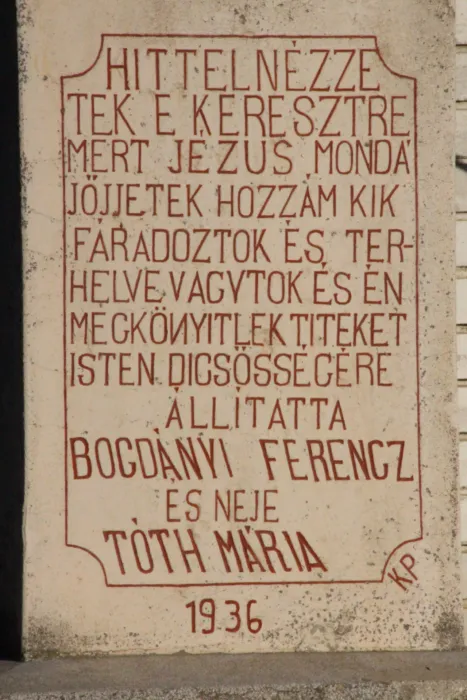 HITTELNÉZZE
TEK E KERESZTRE
MERT JÉZUS MONDÁ
JŐJJETEK HOZZÁM KIK
FÁRADOZTOK ÉS TER-
HELVE VAGYTOK ÉS ÉN
MEGKÖNYITLEK TITEKET
ISTEN DICSÖSSÉGÉRE
ÁLLÍTATTA
BOGDÁNYI FERENCZ
ÉS NEJE
TÓTH MÁRIA
KP
1936